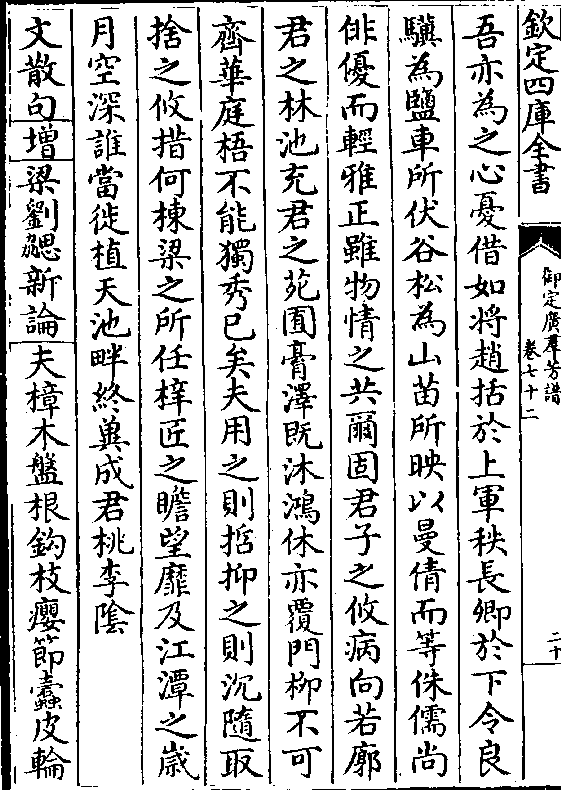 欽定四庫全書
御定廣羣芳譜
卷七十二
二十
吾亦為之心憂借如將趙括於上軍秩長卿於下令良
驥為鹽車所伏谷松為山苗所映以曼倩而等侏儒尚
俳優而輕雅正雖物情之共爾固君子之攸病向若廓
君之林池充君之苑囿膏澤既沐鴻休亦覆門柳不可
齊華庭梧不能獨秀已矣夫用之則括抑之則沉隨取
捨之攸措何棟梁之所任梓匠之瞻望靡及江潭之歲
月空深誰當徙植天池畔終冀成君桃李陰
文散句增梁劉勰新論夫樟木盤根鈎枝癭節蠹皮輪